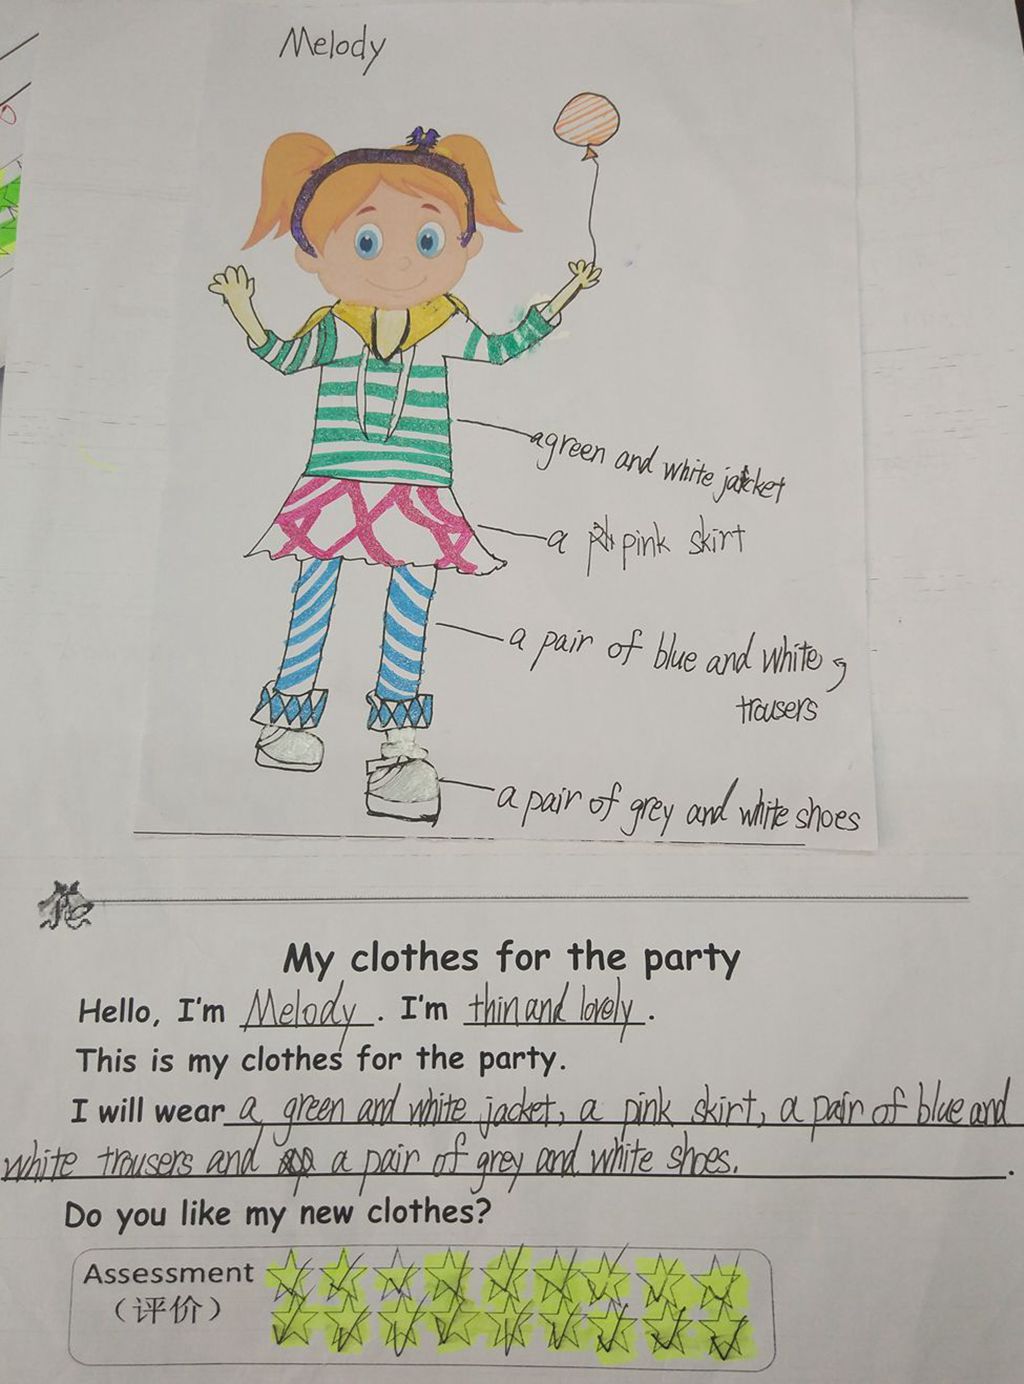 Melody
a green and white jacket
a pink skirt
a pair of blue and white
trousers
a pair of grey and white shoes
My clothes for the party
Hello, I'm Melody. I'm thin and lovely.
This is my clothes for the party.
I will wear a green and white jacket, a pink skirt, a pair of blue and
white trousers and a pair of grey and white shoes. .
Do you like my new clothes?
Assessment
（评价）